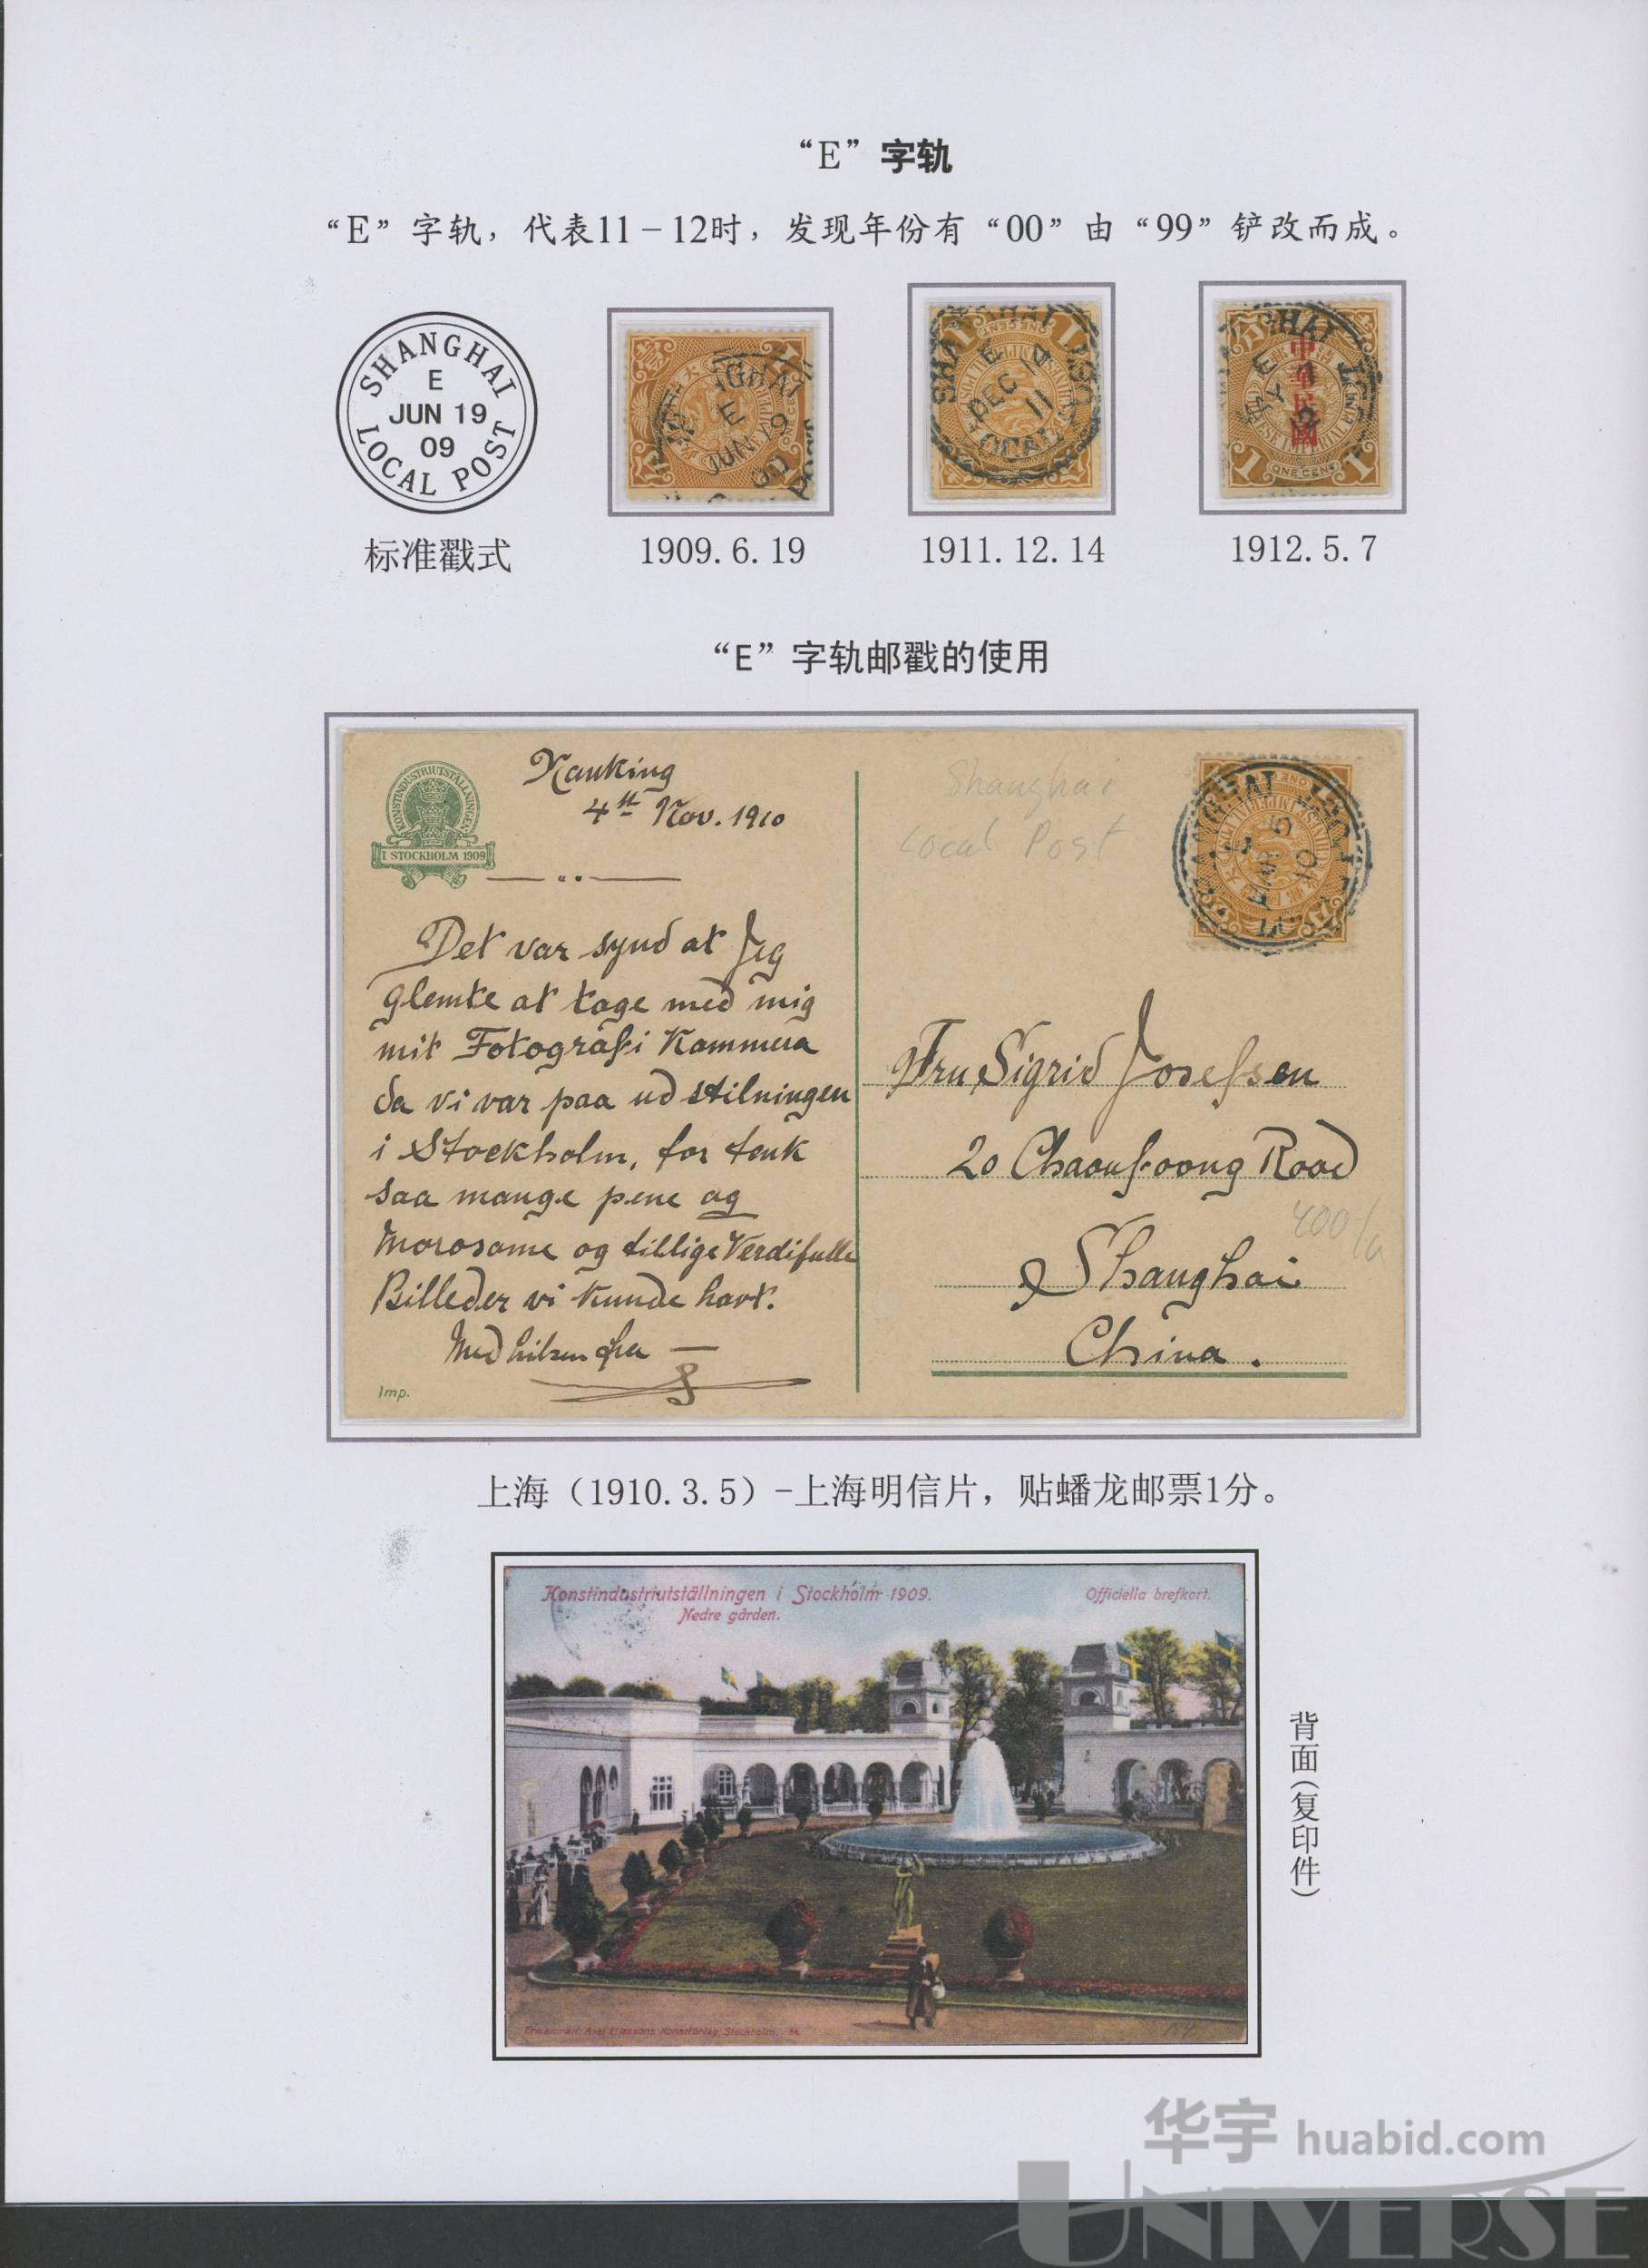 “E”字轨
“E”字轨，代表11－12时，发现年份有“00”由“99”铲改而成。
SHANGHAI
E
JUN 19
09
LOCAL POST
NGHAI
E
JUN 19
09
DEC 14
11
LOCAL
E
中華民國
ONE CENT
标准戳式
1909.6.19
1911.12.14
1912.5.7
“E”字轨邮戳的使用
KONSTINDUSTRIUTSTÄLLNINGEN
I STOCKHOLM 1909
Nanking
4th Nov. 1910
Det var synd at Jeg
glemte at tage med mig
mit Fotografi Kammera
da vi var paa udstilningen
i Stockholm, for tenk
saa mange pene og
morosome og tillige Verdifulle
Billeder vi kunde havt.
Med hilsen fra
Imp.
Shanghai
Local Post
Fru Sigrid Josefsen
20 Chaoufoong Road
400/
Shanghai
China.
上海（1910.3.5）-上海明信片，贴蟠龙邮票1分。
Konstindustriutställningen i Stockholm 1909.
Nedre gården.
Officiella brefkort.
Ensamrätt: Axel Eliassons Konstförlag, Stockholm.
背面(复印件)
华宇 huabid.com
UNIVERSE